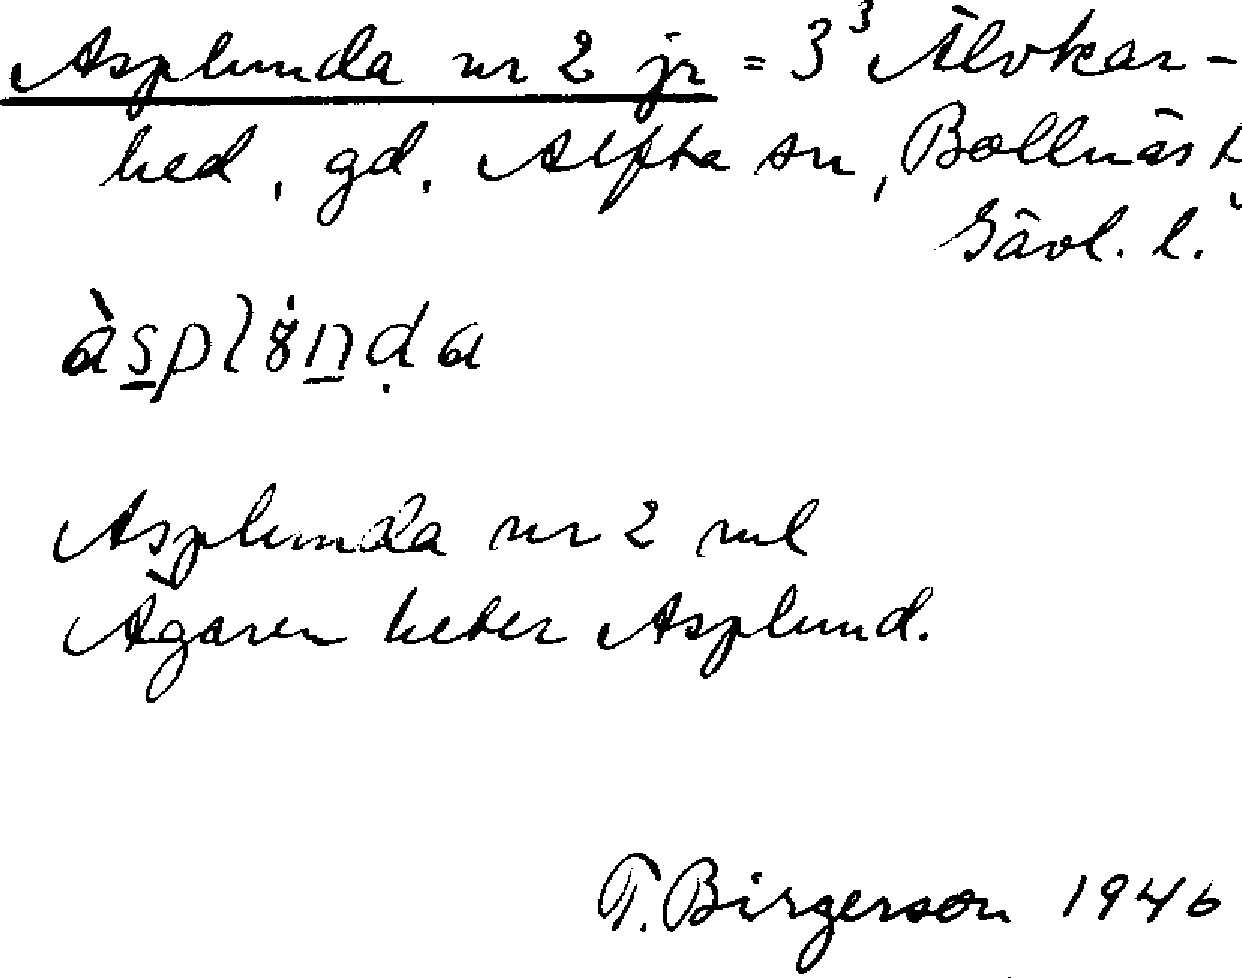 Asplunda nr 2 jr = 3³ Älvkar-
hed, gd. Alfta sn, Bollnäs t
Gävl. l.
àsplúnda
Asplunda nr 2 ml
Ägaren heter Asplund.
T. Birgerson 1946